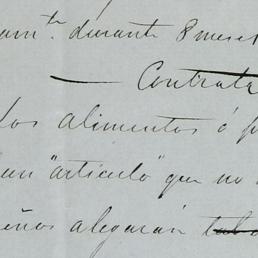 am.te durante 8 meses
Contrata
los alimentos ó
un "articulo" que no
eños alegarán